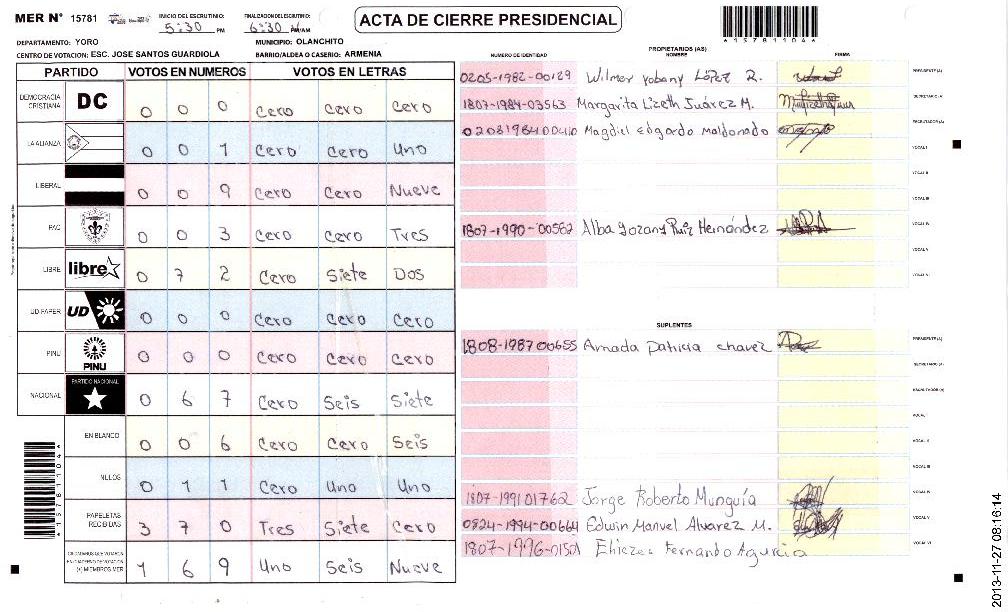 MER N° 15781 INICIO DEL ESCRUTINIO: 5:30 PM FINALIZACION DEL ESCRUTINIO: 6:30 PM/AM ACTA DE CIERRE PRESIDENCIAL
*15781104*
DEPARTAMENTO: YORO MUNICIPIO: OLANCHITO
CENTRO DE VOTACION: ESC. JOSE SANTOS GUARDIOLA BARRIO/ALDEA O CASERIO: ARMENIA
PARTIDO VOTOS EN NUMEROS VOTOS EN LETRAS
DEMOCRACIA CRISTIANA DC 0 0 0 Cero Cero Cero
LA ALIANZA 0 0 1 Cero Cero Uno
LIBERAL 0 0 9 Cero Cero Nueve
PAC 0 0 3 Cero Cero Tres
LIBRE libre 0 7 2 Cero Siete Dos
UD-FAPER UD 0 0 0 Cero Cero Cero
PINU PINU 0 0 0 Cero Cero Cero
NACIONAL PARTIDO NACIONAL 0 6 7 Cero Seis Siete
EN BLANCO 0 0 6 Cero Cero Seis
NULOS 0 1 1 Cero Uno Uno
PAPELETAS RECIBIDAS 3 7 0 Tres Siete Cero
CIUDADANOS QUE VOTARON EN CUADERNO DE VOTACION (+) MIEMBROS MER 1 6 9 Uno Seis Nueve
*15781104*
PROPIETARIOS (AS)
NUMERO DE IDENTIDAD NOMBRE FIRMA
0205-1982-00129 Wilmer Yobany López R. PRESIDENTE(A)
1807-1984-03563 Margarita Lizeth Juárez M. SECRETARIO(A)
0208198400410 Magdiel Edgardo Maldonado ESCRUTADOR(A)
VOCAL I
VOCAL II
VOCAL III
1807-1990-00562 Alba Yozany Ruiz Hernández VOCAL IV
VOCAL V
VOCAL VI
SUPLENTES
1808-1987 00655 Amada Patricia Chavez PRESIDENTE(A)
SECRETARIO(A)
ESCRUTADOR(A)
VOCAL I
VOCAL II
VOCAL III
1807-199101762 Jorge Roberto Munguía VOCAL IV
0824-1994-00664 Edwin Manuel Alvarez M. VOCAL V
1807-1996-0150 Fernando Agurcia VOCAL VI
2013-11-27 08:16:14